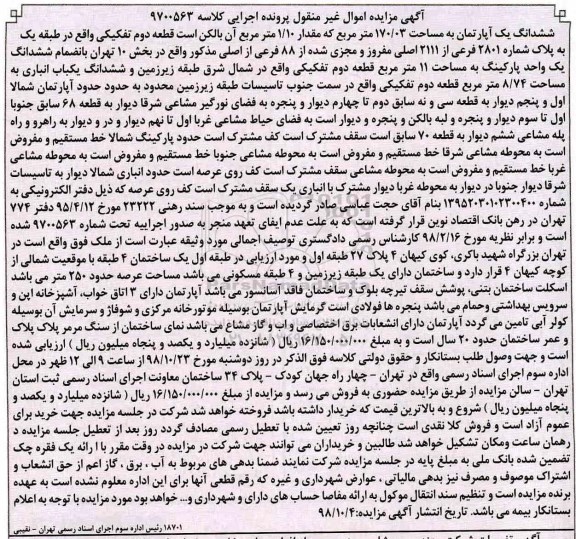 آگهی مزایده اموال غیر منقول پرونده اجرایی کلاسه ۹۷۰۰۵۶۳
ششدانگ یک آپارتمان به مساحت ۱۷۰/۰۳ متر مربع که مقدار ۱/۱۰ متر مربع آن بالکن است قطعه دوم تفکیکی واقع در طبقه یک
به پلاک شماره ۲۸۰۱ فرعی از ۲۱۱۱ اصلی مفروز و مجزی شده از ۸۸ فرعی از اصلی مذکور واقع در بخش ۱۰ تهران بانضمام ششدانگ
یک واحد پارکینگ به مساحت ۱۱ متر مربع قطعه دوم تفکیکی واقع در شمال شرق طبقه زیرزمین و ششدانگ یکباب انباری به
مساحت ۸/۷۴ متر مربع قطعه دوم تفکیکی واقع در سمت جنوب تاسیسات طبقه زیرزمین محدود به حدود حدود آپارتمان شمالا
اول و پنجم دیوار به قطعه سی و نه سابق دوم تا چهارم دیوار و پنجره به فضای نورگیر مشاعی شرقا دیوار به قطعه ۶۸ سابق جنوبا
اول تا سوم دیوار و پنجره و لبه بالکن و پنجره و دیوار است به فضای حیاط مشاعی غربا اول تا نهم دیوار و در و دیوار به راهرو و راه
پله مشاعی ششم دیوار به قطعه ۷۰ سابق است سقف مشترک است کف مشترک است حدود پارکینگ شمالا خط مستقیم و مفروض
است به محوطه مشاعی شرقا خط مستقیم و مفروض است به محوطه مشاعی جنوبا خط مستقیم و مفروض است به محوطه مشاعی
غربا خط مستقیم و مفروض است به محوطه مشاعی سقف مشترک است کف روی عرصه است حدود انباری شمالا دیوار به تاسیسات
شرقا دیوار جنوبا در و دیوار به محوطه غربا دیوار مشترک با انباری یک سقف مشترک است کف روی عرصه که ذیل دفتر الکترونیکی به
شماره ۱۳۹۵۲۰۳۰۱۰۲۳۰۰۴۰۰ بنام آقای حجت عباسی صادر گردیده است و به موجب سند رهنی ۲۳۲۲۲ مورخ ۹۵/۴/۱۲ دفتر ۷۷۴
تهران در رهن بانک اقتصاد نوین قرار گرفته است که به علت عدم ایفای تعهد منجر به صدور اجراییه تحت شماره ۹۷۰۰۵۶۳ شده
است و برابر نظریه مورخ ۹۸/۲/۱۶ کارشناس رسمی دادگستری توصیف اجمالی مورد وثیقه عبارت است از ملک فوق واقع است در
تهران بزرگراه شهید باکری، کوی کیهان ۴ پلاک ۲۷ طبقه اول و مورد ارزیابی در طبقه اول یک ساختمان ۴ طبقه با موقعیت شمالی از
کوچه کیهان ۴ قرار دارد و ساختمان دارای یک طبقه زیرزمین و ۴ طبقه مسکونی می باشد مساحت عرصه حدود ۲۵۰ متر می باشد
اسکلت ساختمان بتنی، پوشش سقف تیرچه بلوک، ساختمان فاقد آسانسور می باشد آپارتمان دارای ۳ اتاق خواب، آشپزخانه اپن و
سرویس بهداشتی وحمام می باشد پنجره ها فولادی است گرمایش آپارتمان بوسیله موتورخانه مرکزی و شوفاژ و سرمایش آن بوسیله
کولر آبی تامین می گردد آپارتمان دارای انشعابات برق اختصاصی و اب و گاز مشاع می باشد نمای ساختمان از سنگ مرمر پلاک پلاک
و عمر ساختمان حدود ۲۰ سال است و به مبلغ ۱۶/۱۵۰/۰۰۰/۰۰۰ ریال ( شانزده میلیارد و یکصد و پنجاه میلیون ریال ) ارزیابی شده
است و جهت وصول طلب بستانکار و حقوق دولتی کلاسه فوق الذکر در روز دوشنبه مورخ ۹۸/۱۰/۲۳ از ساعت ۹ الی ۱۲ ظهر در محل
اداره سوم اجرای اسناد رسمی واقع در تهران - چهار راه جهان کودک - پلاک ۳۴ ساختمان معاونت اجرای اسناد رسمی ثبت استان
تهران - سالن مزایده از طریق مزایده حضوری به فروش می رسد و مزایده از مبلغ ۱۶/۱۵۰/۰۰۰/۰۰۰ ریال ( شانزده میلیارد و یکصد و
پنجاه میلیون ریال ) شروع و به بالاترین قیمت که خریدار داشته باشد فروخته خواهد شد شرکت در جلسه مزایده جهت خرید برای
عموم آزاد است و فروش کلا نقدی است چنانچه روز تعیین شده با تعطیل رسمی مصادف گردد روز بعد از تعطیل جلسه مزایده د
رهمان ساعت ومکان تشکیل خواهد شد طالبین و خریداران می توانند جهت شرکت در مزایده در وقت مقرر با ا رائه یک فقره چک
تضمین شده بانک ملی به مبلغ پایه در جلسه مزایده شرکت نمایند ضمنا بدهی های مربوط به آب ، برق ، گاز اعم از حق انشعاب و
اشتراک موصوف و مصرف نیز بدهی مالیاتی ، عوارض شهرداری و غیره که رقم قطعی آنها برای این اداره معلوم نشده است به عهده
برنده مزایده است و تنظیم سند انتقال موکول به ارائه مفاصا حساب های دارای و شهرداری و... خواهد بود مورد مزایده با توجه به اعلام
بستانکار بیمه می باشد. تاریخ انتشار آگهی مزایده: ۹۸/۱۰/۴
۱۸۷۰۱ رئیس اداره سوم اجرای اسناد رسمی تهران - نقیبی